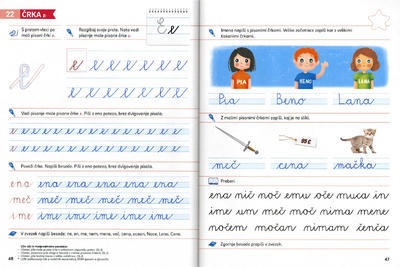 22 ČRKA e
S prstom vleci po
mali pisani črki e.
Razgibaj svoje prste. Nato vadi
pisanje male pisane črke e.
E e
e
e e e e e e e
e e e e e e e
Vadi pisanje male pisane črke e. Piši z eno potezo, brez dvigovanja pisala.
Poveži črke. Napiši besede. Piši z eno potezo, brez dvigovanja pisala.
ena ena ena ena ena
meč meč meč meč meč
ime ime ime ime ime
V zvezek napiši besede: ne, en, me, nem, mene, več, cena, ocean, Nace, Lena, Cene.
46
Imena napiši s pisanimi črkami. Velike začetnice zapiši kar z velikimi
tiskanimi črkami.
PIA BENO LANA
Pia Beno Lana
Z malimi pisanimi črkami zapiši, kaj je na sliki.
95 €
meč cena mačka
Preberi.
ena nič noč emu oče muca in
ime um meč moč nima mene
nočem močan nimam čenča
Zgornje besede prepiši v zvezek.
47